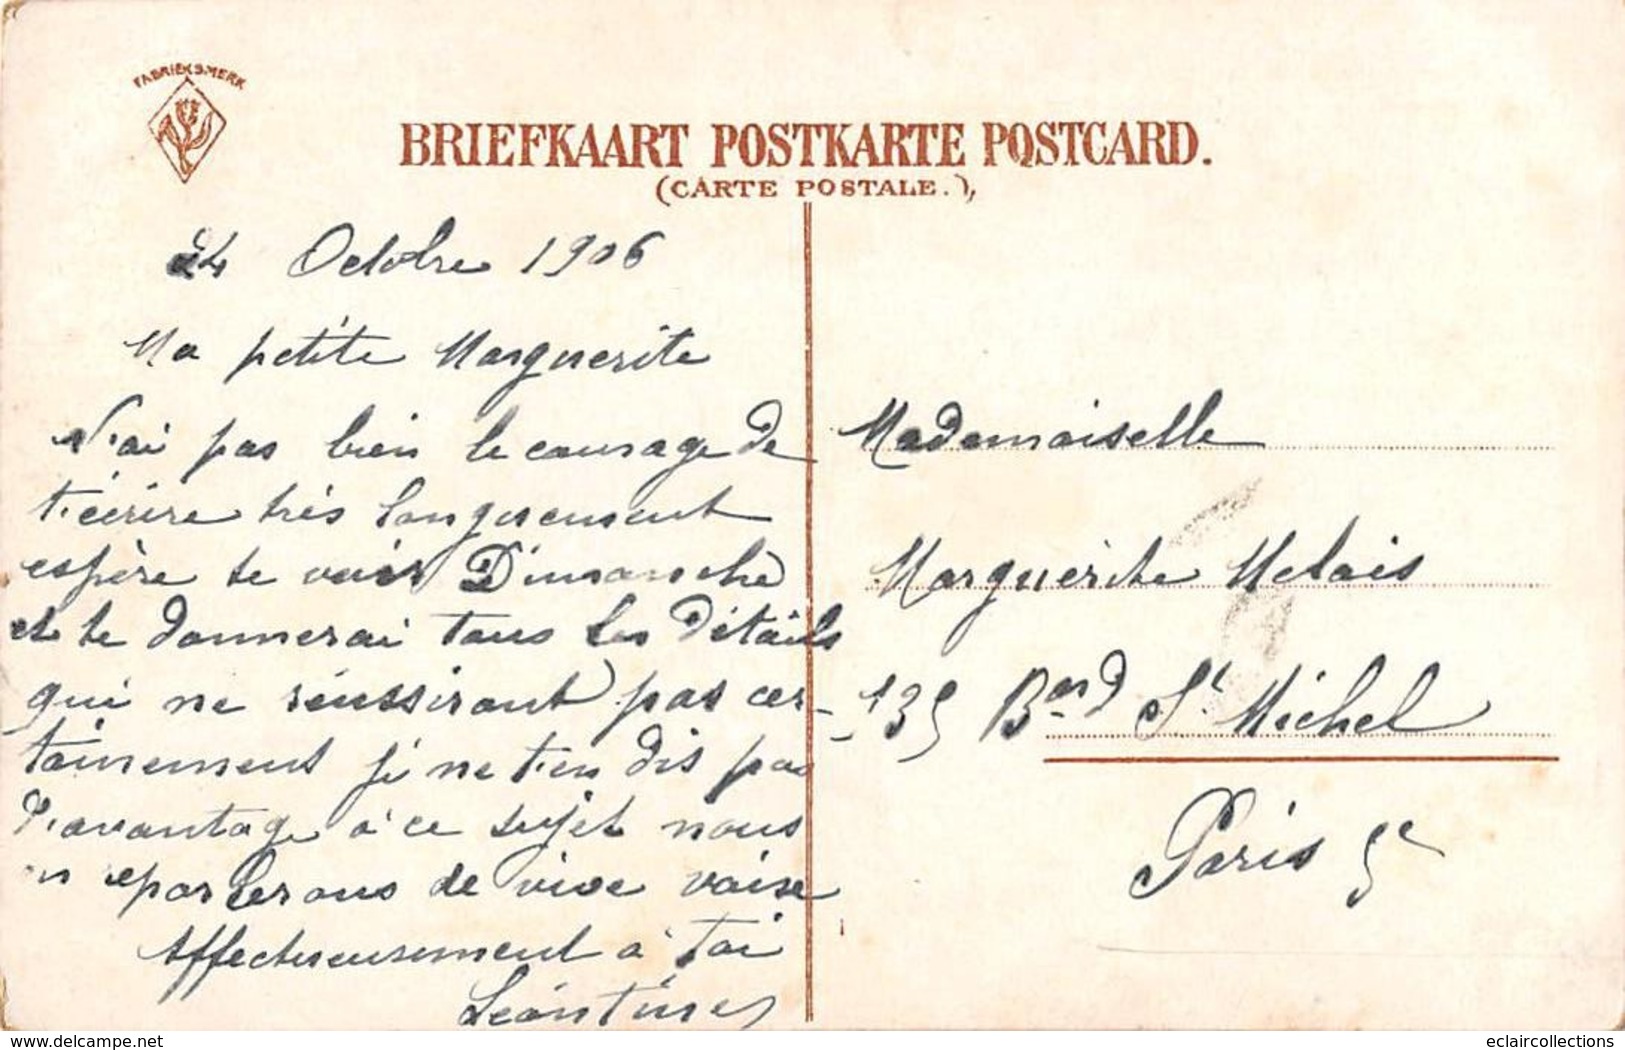 FABRIEKSMERK
BRIEFKAART POSTKARTE POSTCARD.
(CARTE POSTALE.),
24 Octobre 1906
Ma petite Marguerite
N'ai pas bien le courage de
t'écrire très longuement
espère te voir Dimanche
et te donnerai tous les détails
qui ne réussiront pas cer-
tainement je ne t'en dis pas
d'avantage à ce sujet nous
en reparlerons de vive voise
Affectueusement à toi
Léontine
Mademoiselle
Marguerite Melais
135 Bard St Michel
Paris 5e
delcampe.net
eclaircollections